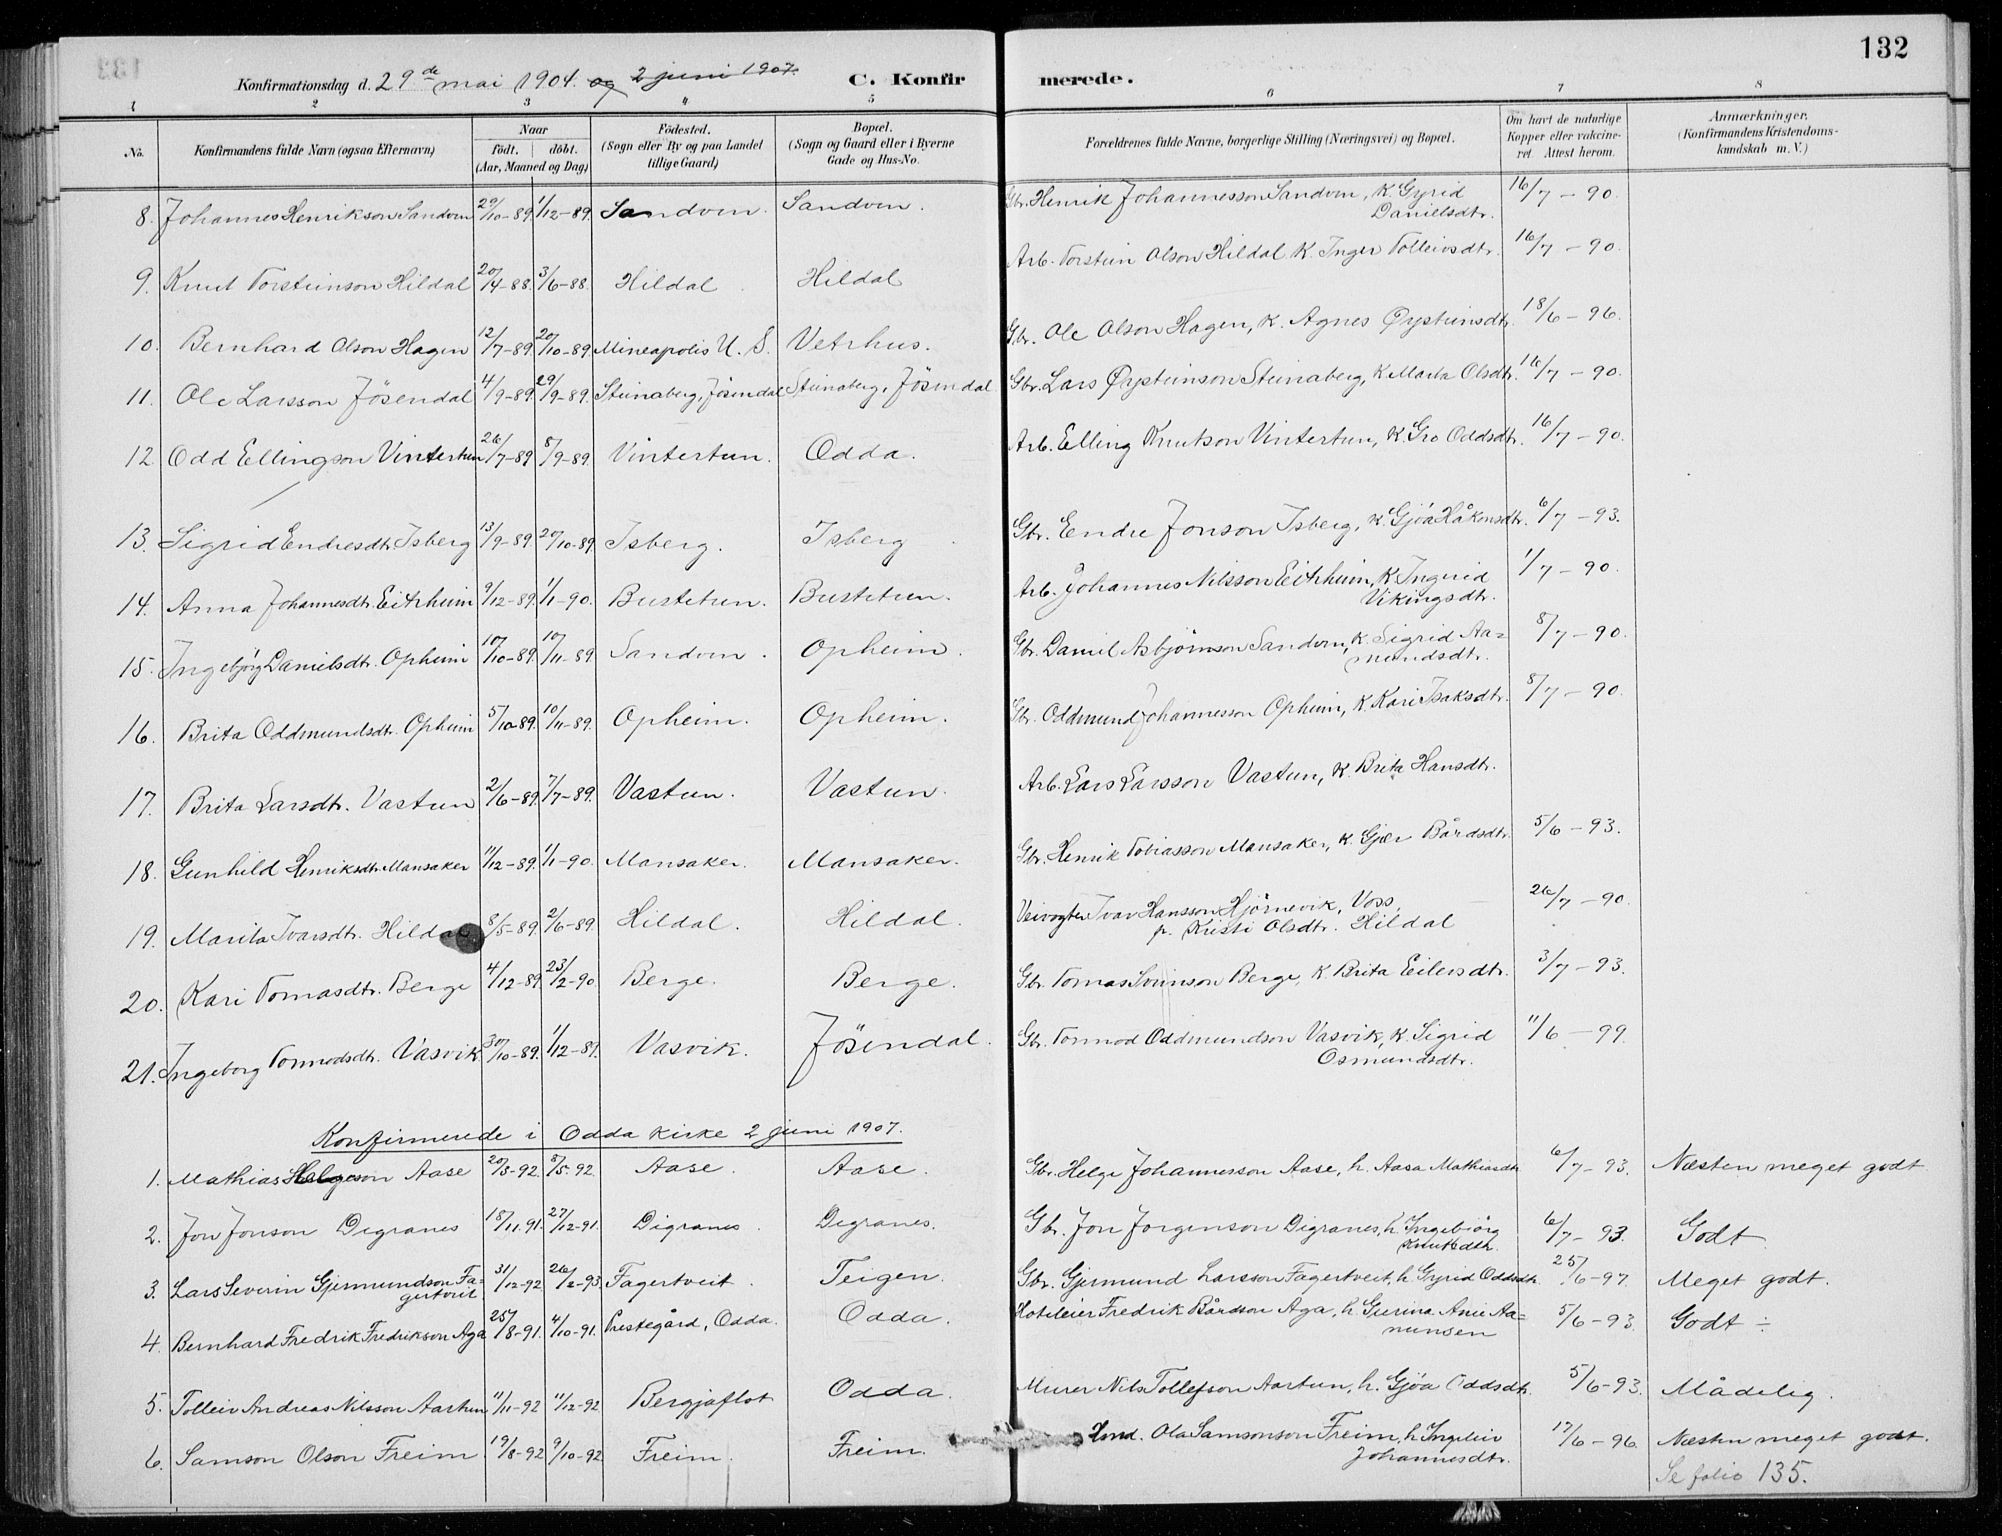 132
Konfirmationsdag d. 29de mai 1904. og 2 juni 1907. C. Konfirmerede.
1 2 3 4 5 6 7 8
No. Konfirmandens fulde Navn (ogsaa Efternavn) Naar født. døbt. (Aar, Maaned og Dag) Fødested. (Sogn eller By og paa Landet tillige Gaard) Bopæl. (Sogn og Gaard eller i Byerne Gade og Hus-No. Forældrenes fulde Navne, borgerlige Stilling (Næringsvei) og Bopæl. Om havt de naturlige Kopper eller vakcineret. Attest herom. Anmærkninger. (Konfirmandens Kristendomskundskab m. V.)
8. Johannes Henrikson Sandven 29/10-89. 1/12-89. Sandven. Sandven. Gbr. Henrik Johannesson Sandven, K. Gyrid Danielsdtr. 16/7 - 90.
9. Knut Torsteinson Hildal 20/4-88. 3/6-88. Hildal Hildal Arb. Torstein Olson Hildal K. Inger Tolleivsdtr. 16/7 - 90.
10. Bernhard Olson Hagen 12/7-89. 20/10-89. Mineapolis U. S. Vetrhus. Gbr. Ole Olson Hagen, K. Agnes Øysteinsdtr. 18/6 - 96.
11. Ole Larsson Jösendal 4/9-89. 29/9-89. Steinaberg, Jösendal Steinaberg, Jösendal Gbr. Lars Øysteinson Steinaberg, K. Marta Olsdtr. 16/7 - 90.
12. Odd Ellingson Vintertun 26/7-89 8/9-89. Vintertun. Odda. Arb. Elling Knutson Vintertun, K. Gro Oddsdtr. 16/7 - 90.
13. Sigrid Endresdtr. Isberg 13/9-89. 20/10-89. Isberg. Isberg. Gbr. Endre Jonson Isberg, K. Gjöa Håkonsdtr. 6/7 - 93.
14. Anna Johannesdtr. Eitrheim 9/12-89. 1/1-90. Bustetun. Bustetun. Arb. Johannes Nilsson Eitrheim, K. Ingerid Vikingsdtr. 1/7 - 90.
15. Ingebjörg Danielsdtr. Opheim 10/10-89. 10/11-89 Sandven. Opheim. Gbr. Daniel Asbjörnson Sandven, K. Sigrid Aamundsdtr. 8/7 - 90.
16. Brita Oddmundsdtr. Opheim 5/10-89. 10/11-89. Opheim. Opheim. Gbr. Oddmund Johannesson Opheim, K. Kari Isaksdtr. 8/7 - 90.
17. Brita Larsdtr. Vastun 2/6-89. 7/7-89. Vastun. Vastun. Arb. Lars Larsson Vastun, K. Brita Hansdtr.
18. Gunhild Henriksdtr. Mansaker 11/12-89. 1/1-90. Mansaker. Mansaker. Gbr. Henrik Tobiasson Mansaker, K. Gjær Bårdsdtr. 5/6 - 93.
19. Marita Ivarsdtr. Hildal 8/5-89. 2/6-89. Hildal. Hildal. Veivogter Ivar Hansson Hjörnevik, Voss, p. Kristi Olsdtr. Hildal 26/7 - 90.
20. Kari Tomasdtr. Berge 4/12-89. 23/2-90. Berge. Berge. Gbr. Tomas Sveinson Berge, K. Brita Eilevsdtr. 3/7 - 93.
21. Ingeborg Tormodsdtr. Vasvik 30/10-89. 1/12-89. Vasvik. Jösendal. Gbr. Tormod Oddmundson Vasvik, K. Sigrid Osmundsdtr. 11/6 - 99.
Konfirmerede i Odda kirke 2 juni 1907.
1. Mathias Helgeson Aase 20/3-92. 8/5-92. Aase. Aase. Gbr. Helge Johannesson Aase, h. Aasa Mathiasdtr. 6/7 - 93. Næsten meget godt
2. Jon Jonson Digranes 18/11.91. 27/12-91. Digranes. Digranes. Gbr. Jon Jorgenson Digranes, h. Ingebjörg Knutsdtr. 6/7 - 93. Godt
3. Lars Severin Gjermundson Fagertveit 31/12-92 26/2-93. Fagertveit. Teigen. Gbr. Gjermund Larsson Fagertveit, h. Gyrid Oddsdtr. 25/6-97. Meget godt.
4. Bernhard Fredrik Fredrikson Aga 25/8-91. 4/10-91. Prestegård, Odda. Odda. Hoteleier Fredrik Bårdson Aga, h. Gurina Anie Aamunsen 5/6 - 93. Godt ÷
5. Tolleiv Andreas Nilsson Aartun 11/11-92 11/12-92 Bergjaflot Odda. Murer Nils Tollefson Aartun, h. Gjöa Oddsdtr. 5/6-93. Mådelig.
6. Samson Olson Freim. 19/8-92 9/10-92 Freim. Freim. Hmd. Ola Samsonson Freim, h. Ingeleiv Johannesdtr. 17/6 - 96. Næsten meget godt.
Se folio 135.